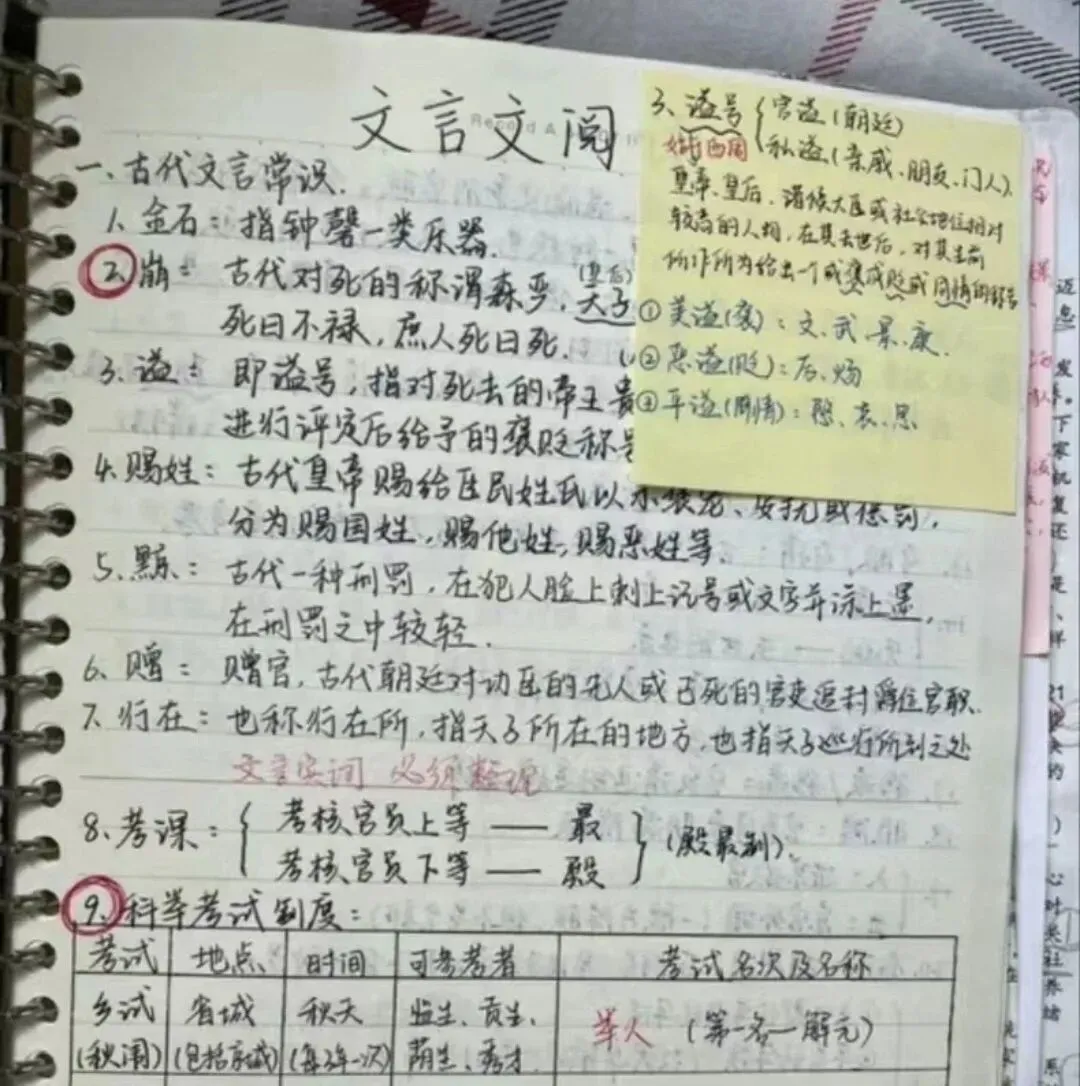 文言文阅
一、古代文言常识.
1、金石：指钟磬一类乐器.
2、崩：古代对死的称谓森严，(皇后)天子
死曰不禄，庶人死曰死.
3、谥：即谥号，指对死去的帝王贵
进行评定后给予的褒贬称号
4、赐姓：古代皇帝赐给臣民姓氏以示褒宠、安抚或惩罚，
分为赐国姓，赐他姓，赐恶姓等.
5、黥：古代一种刑罚，在犯人脸上刺上记号或文字并涂上墨，
在刑罚之中较轻.
6、赠：赠官，古代朝廷对功臣的先人或已死的官吏追封爵位官职.
7、行在：也称行在所，指天子所在的地方，也指天子巡行所到之处
文言实词 必须整理
8、考课：{考核官员上等——最
考核官员下等——殿}(殿最制)
9、科举考试制度：
考试 地点 时间 可参考者 考试名次及名称
乡试 省城 秋天 监生、贡生、 举人 (第一名—解元)
(秋闱) (包括京城) (每3年一次) 荫生、秀才
3、谥号{官谥(朝廷)
始于西周 私谥(亲戚、朋友、门人)
皇帝、皇后、诸侯大臣或社会地位相对
较高的人物，在其去世后，对其生前
所作所为给出一个或褒或贬或同情的称号
①美谥(褒)：文、武、景、康.
②恶谥(贬)：厉、炀
③平谥(同情)：愍、哀、思